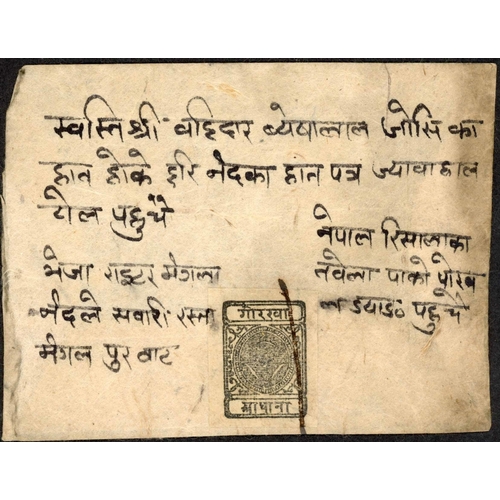 स्वस्ति श्री वहिदार व्येषालाल जोसि का
हात होके हरि नंदका हात पत्र ज्यावाहाल
टोल पहुचै
नेपाल रिसालाका
तवेला पाको पोख
पहुचे
भेजा राइटर मंगला
नंदले सवारी रस्ता
मंगल पुर वाट
गोरखा
आधाना